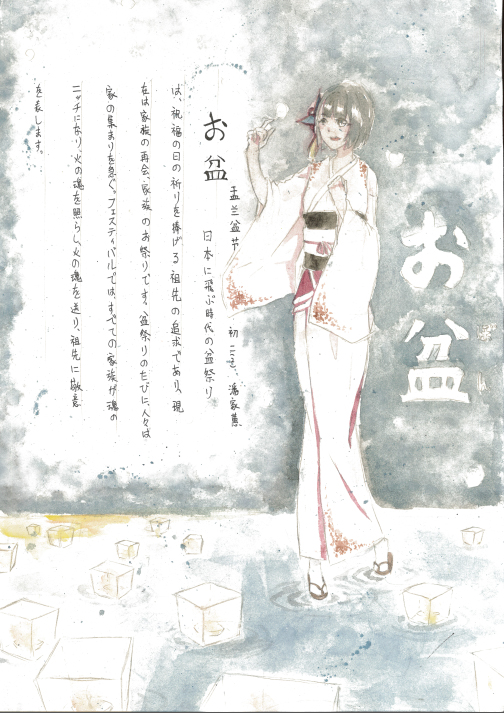 お盆
お盆
盂兰盆节 初一(3)、潘家薫
日本に飛ぶ時代の盆祭り
は、祝福の日の祈りを捧げる祖先の追求であり、現
在は家族の再会、家族のお祭りです。盆祭りのたびに、人々は
家の集まりを急ぐ。フェスティバルでは、すべての家族が魂の
ニッチになり火の魂を照らし、火の魂を送り、祖先に敬意
を表します。